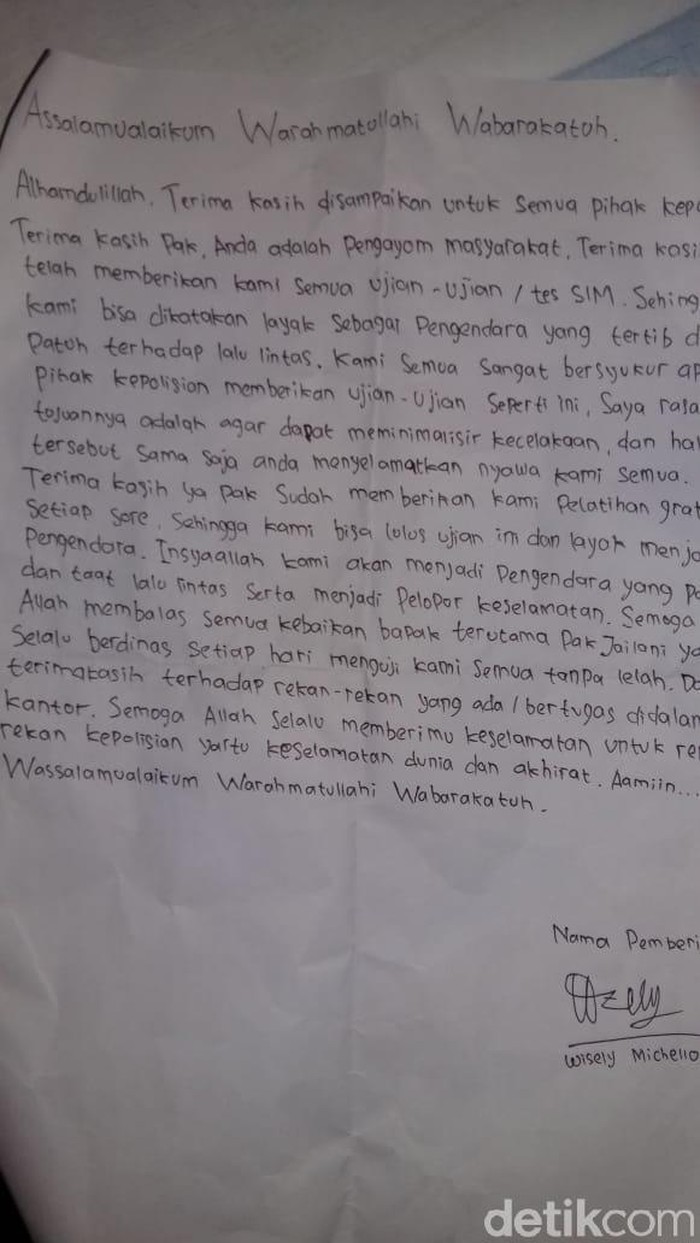 Assalamualaikum Warahmatullahi Wabarakatuh.
Alhamdulillah, Terima kasih disampaikan untuk semua pihak kepo
Terima kasih Pak, Anda adalah Pengayom masyarakat, Terima kasi
telah memberikan kami semua ujian-ujian / tes SIM. Sehing
kami bisa dikatakan layak sebagai Pengendara yang tertib d
Patuh terhadap lalu lintas. Kami semua sangat bersyukur ap
Pihak kepolision memberikan ujian-ujian seperti ini, Saya rasa
tujuannya adalah agar dapat meminimalisir kecelakaan, dan hal
tersebut sama saja anda menyelamatkan nyawa kami semua.
Terima kasih ya pak sudah memberikan kami Pelatihan grat
setiap sore, sehingga kami bisa lolos ujian ini dan layak menja
Pengendara. Insyaallah kami akan menjadi Pengendara yang Pa
dan taat lalu lintas serta menjadi Pelopor keselamatan. Semoga
Allah membalas semua kebaikan bapak terutama Pak Jailani ya
Selalu berdinas setiap hari menguji kami semua tanpa lelah. Da
terimakasih terhadap rekan-rekan yang ada / bertugas didalam
kantor. Semoga Allah selalu memberimu keselamatan untuk re
rekan kepolisian yaitu keselamatan dunia dan akhirat. Aamiin...
Wassalamualaikum Warahmatullahi Wabarakatuh.
Nama Pemberi
Wzely
Wisely Michello
detikcom